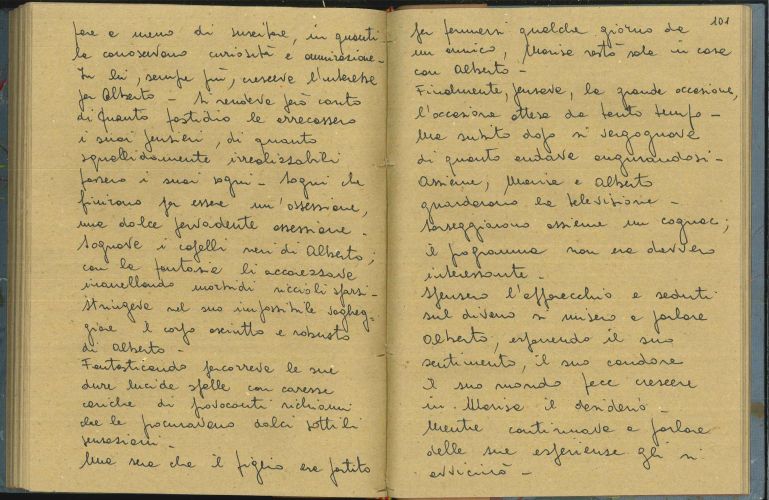 fare a meno di suscitare, in quanti
la conoscevano curiosità e ammirazione -
In lei, sempre più, cresceva l'interesse
per Alberto - Si rendeva però conto
di quanto fastidio le arrecassero
i suoi pensieri, di quanto
squallidamente irrealizzabili
fossero i suoi sogni - Sogni che
finirono per essere un'ossessione,
una dolce pervadente ossessione -
Sognava i capelli neri di Alberto;
con la fantasia li accarezzava
inanellando morbidi riccioli sparsi -
Stringeva nel suo impossibile vagheg=
giare il corpo asciutto e robusto
di Alberto -
Fantasticando percorreva le sue
dure lucide spalle con carezze
cariche di provocanti richiami
che le procuravano dolci sottili
sensazioni -
Una sera che il figlio era partito
101
per fermarsi qualche giorno da
un amico, Marisa restò sola in casa
con Alberto -
Finalmente, pensava, la grande occasione,
l'occasione attesa da tanto tempo -
Ma subito dopo si vergognava
di quanto andava augurandosi -
Assieme, Marisa e Alberto
guardarono la televisione -
Sorseggiarono assieme un cognac;
il programma non era davvero
interessante -
Spensero l'apparecchio e seduti
sul divano si misero a parlare
Alberto, esponendo il suo
sentimento, il suo candore
il suo mondo fece crescere
in Marisa il desiderio -
Mentre continuava a parlare
delle sue esperienze gli si
avvicinò -